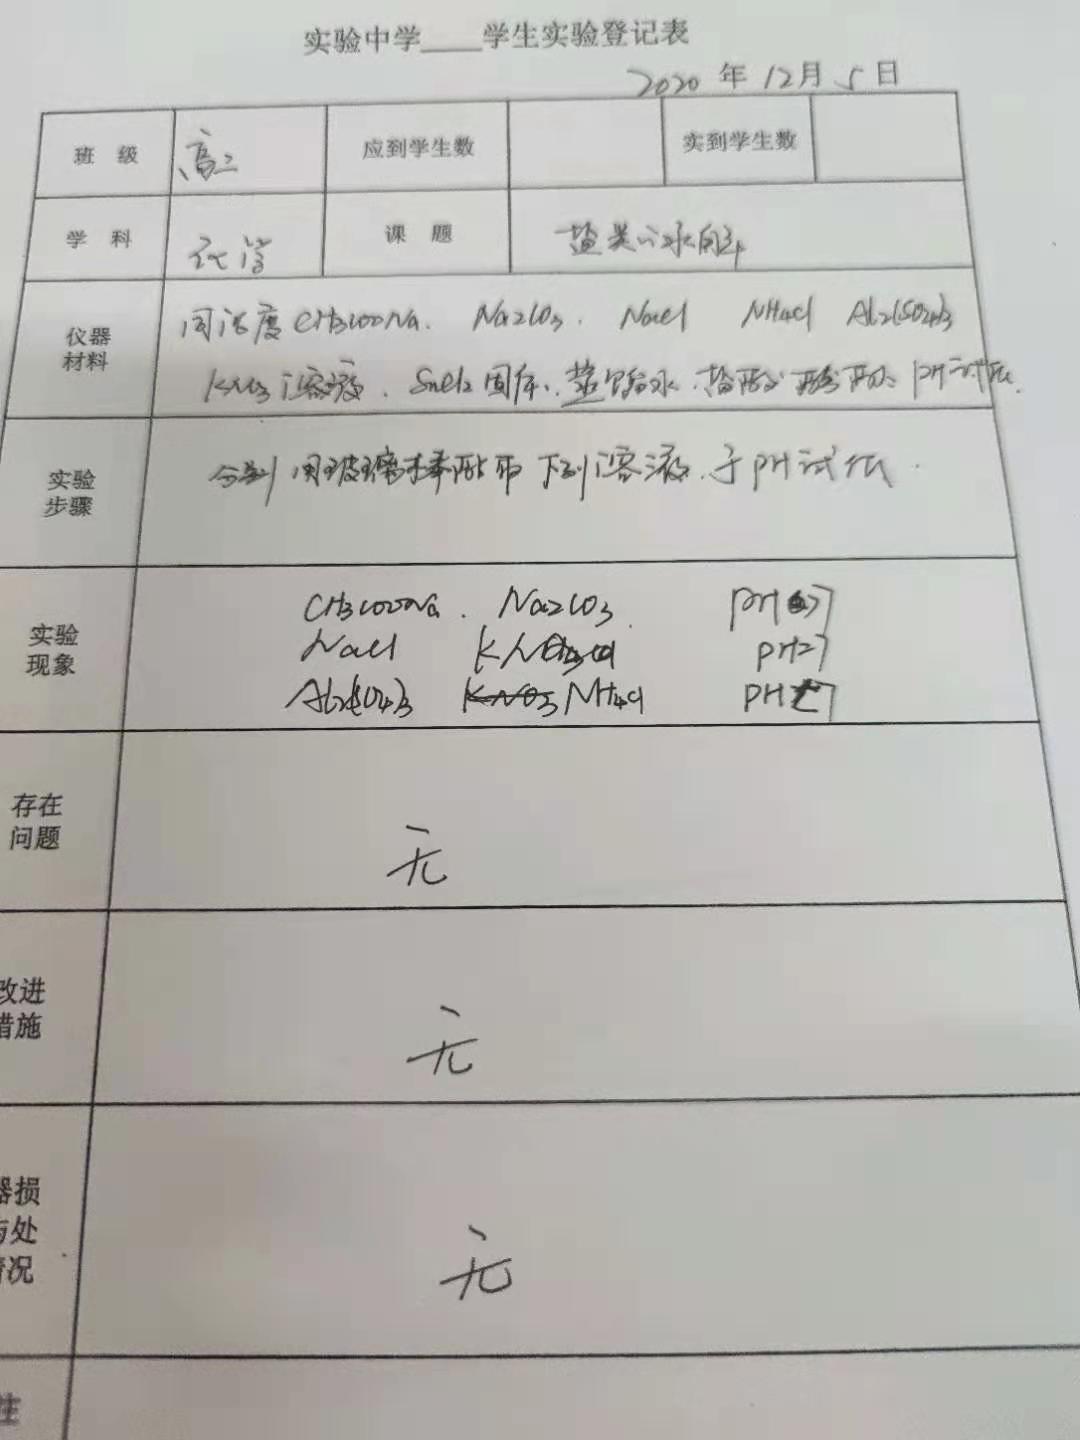 实验中学____学生实验登记表
2020 年 12月 5 日
班 级 高二 应到学生数 实到学生数
学 科 化学 课 题 盐类的水解
仪器 同浓度 CH3COONa. Na2CO3. NaCl NH4Cl Al2(SO4)3
材料 KNO3溶液. SnCl2固体. 蒸馏水. 酚酞 PH试纸.
实验 分别用玻璃棒蘸取下列溶液.于PH试纸.
步骤
CH3COONa. Na2CO3. PH>7
实验 NaCl KNO3 PH=7
现象 Al2(SO4)3 NH4Cl PH<7
存在
问题 无
改进
措施 无
器损
与处 无
情况
注